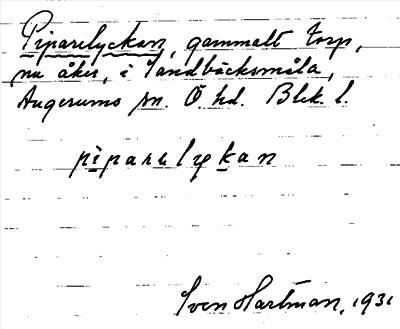 Piparelyckan, gammalt torp,
nu åker, i Sandbäcksmåla,
Augerums sn. Ö. hd. Blek. l.
piparelykan
Sven Hartman, 1931